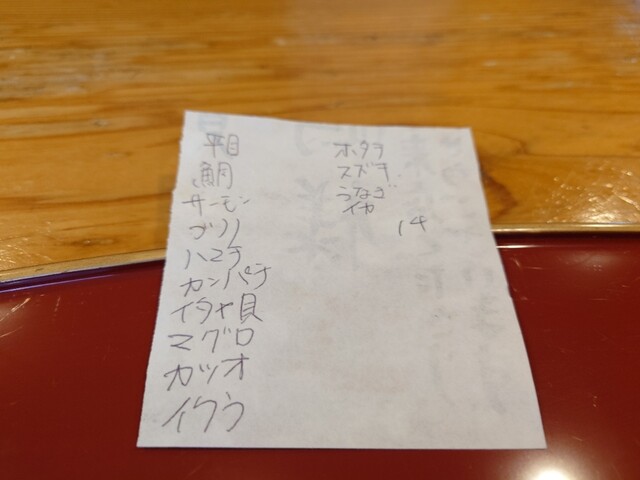 平目
鯛
サーモン
ブリ
ハマチ
カンパチ
イタヤ貝
マグロ
カツオ
イクラ
ホタテ
スズキ
うなぎ
イカ
14